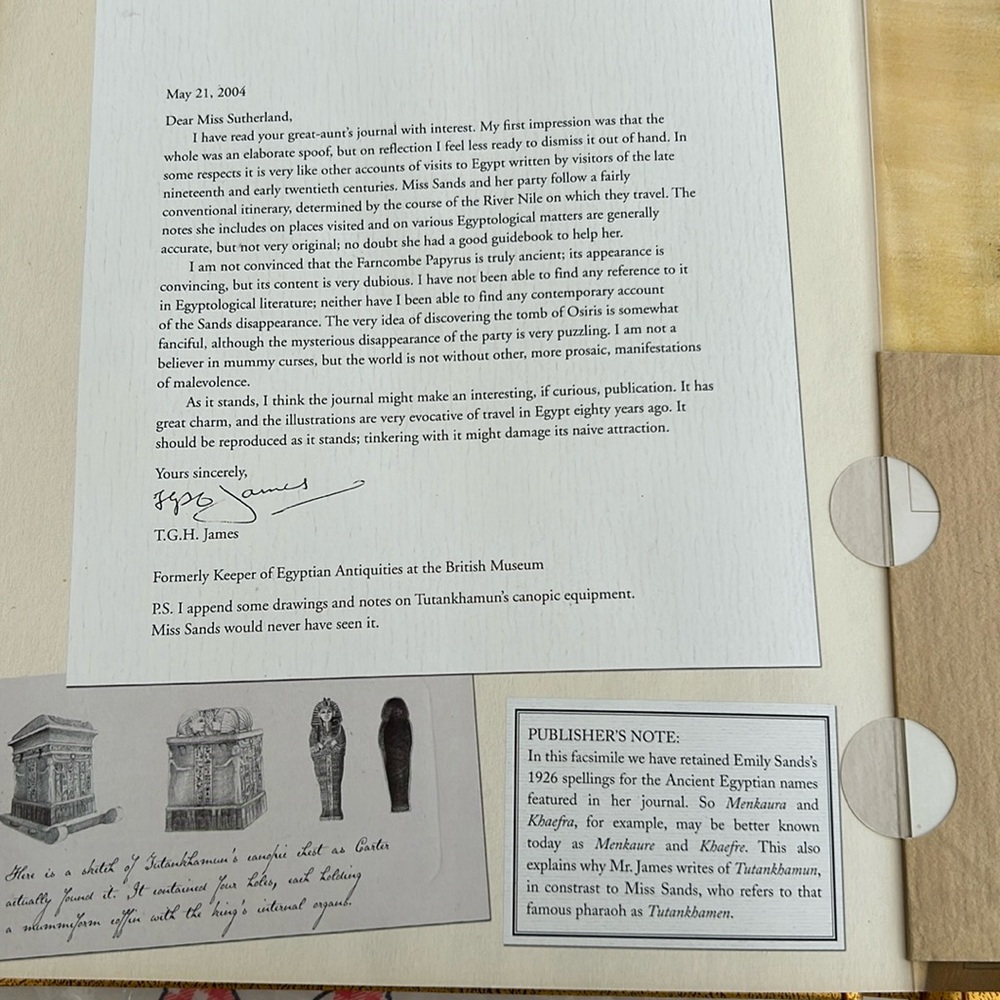 May 21, 2004
Dear Miss Sutherland,
I have read your great-aunt's journal with interest. My first impression was that the
whole was an elaborate spoof, but on reflection I feel less ready to dismiss it out of hand. In
some respects it is very like other accounts of visits to Egypt written by visitors of the late
nineteenth and early twentieth centuries. Miss Sands and her party follow a fairly
conventional itinerary, determined by the course of the River Nile on which they travel. The
notes she includes on places visited and on various Egyptological matters are generally
accurate, but not very original; no doubt she had a good guidebook to help her.
I am not convinced that the Farncombe Papyrus is truly ancient; its appearance is
convincing, but its content is very dubious. I have not been able to find any reference to it
in Egyptological literature; neither have I been able to find any contemporary account
of the Sands disappearance. The very idea of discovering the tomb of Osiris is somewhat
fanciful, although the mysterious disappearance of the party is very puzzling. I am not a
believer in mummy curses, but the world is not without other, more prosaic, manifestations
of malevolence.
As it stands, I think the journal might make an interesting, if curious, publication. It has
great charm, and the illustrations are very evocative of travel in Egypt eighty years ago. It
should be reproduced as it stands; tinkering with it might damage its naive attraction.
Yours sincerely,
James
T.G.H. James
Formerly Keeper of Egyptian Antiquities at the British Museum
P.S. I append some drawings and notes on Tutankhamun's canopic equipment.
Miss Sands would never have seen it.
Here is a sketch of Tutankhamun's canopic chest as Carter
actually found it. It contained four holes, each holding
a mummiform coffin with the king's internal organs.
PUBLISHER'S NOTE:
In this facsimile we have retained Emily Sands's
1926 spellings for the Ancient Egyptian names
featured in her journal. So Menkaura and
Khaefra, for example, may be better known
today as Menkaure and Khaefre. This also
explains why Mr. James writes of Tutankhamun,
in constrast to Miss Sands, who refers to that
famous pharaoh as Tutankhamen.